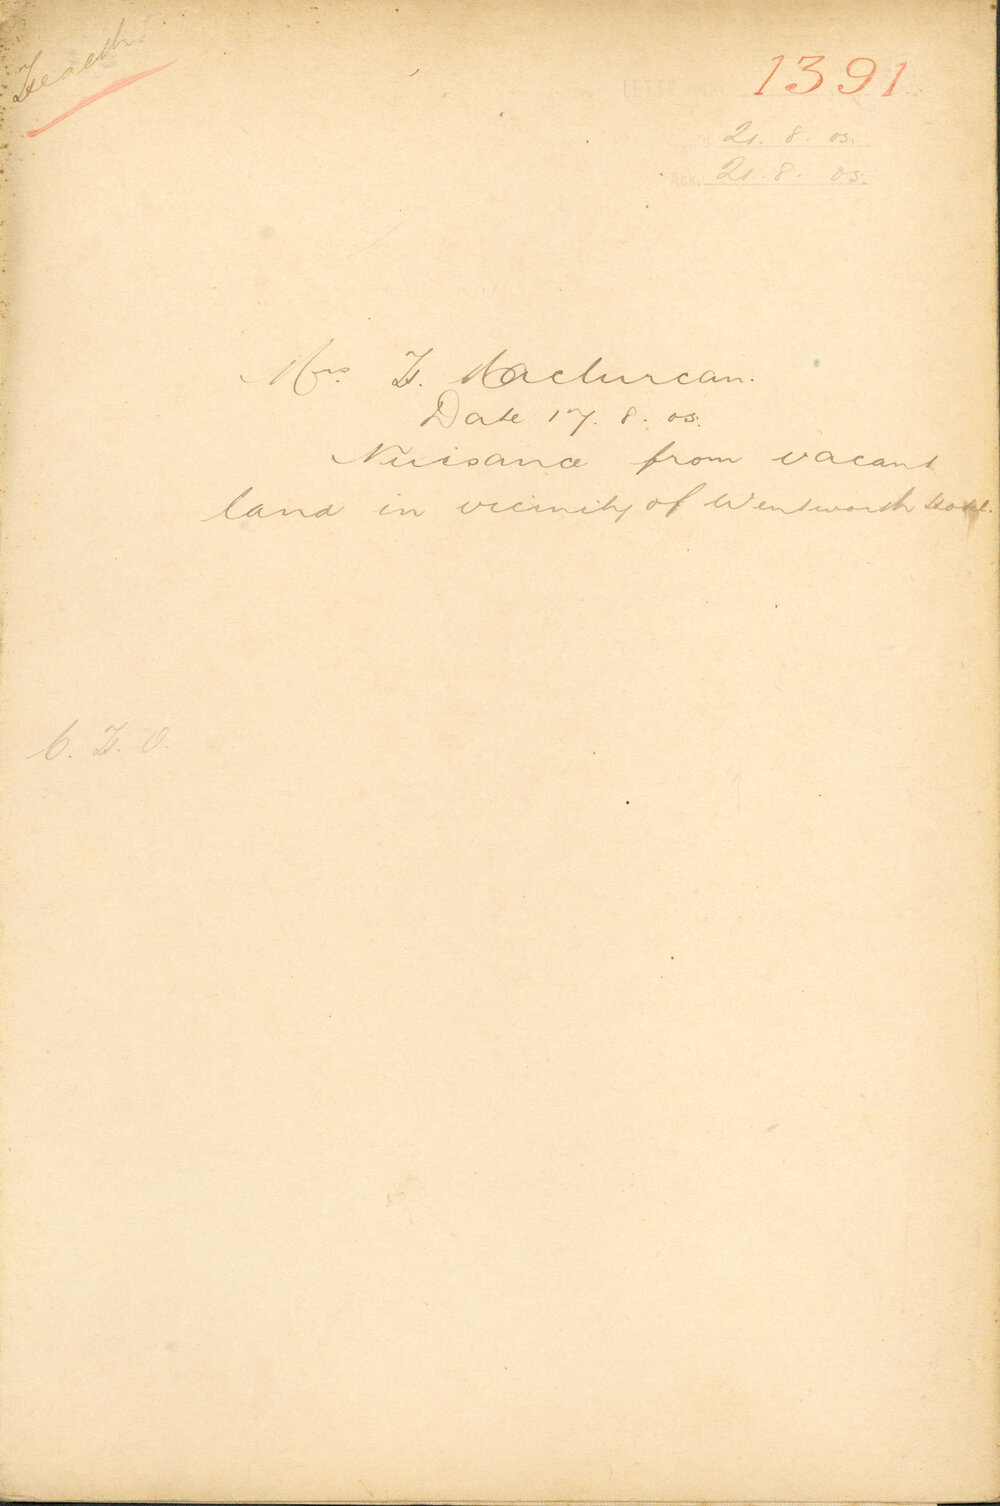 Health
1391
LETTER
Rec'd 21. 8. 05.
Ack. 21. 8. 05.
Mrs. H. Maclurcan.
Date 17. 8. 05.
Nuisance from vacant
land in vicinity of Wentworth Hotel.
C. H. O.